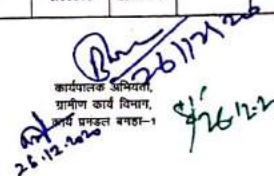 26/12/20
कार्यपालक अभियंता,
ग्रामीण कार्य विभाग,
कार्य प्रमंडल बगहा-1
26.12.2020
26.12.2